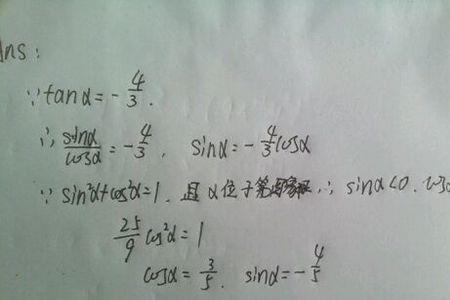 Ans:
∵ tanα = -4/3.
∴ sinα/cosα = -4/3, sinα = -4/3 cosα
∵ sin²α+cos²α=1, 且α位于第四象限 ∴ sinα<0, cosα
25/9 cos²α = 1
cosα = 3/5, sinα = -4/5